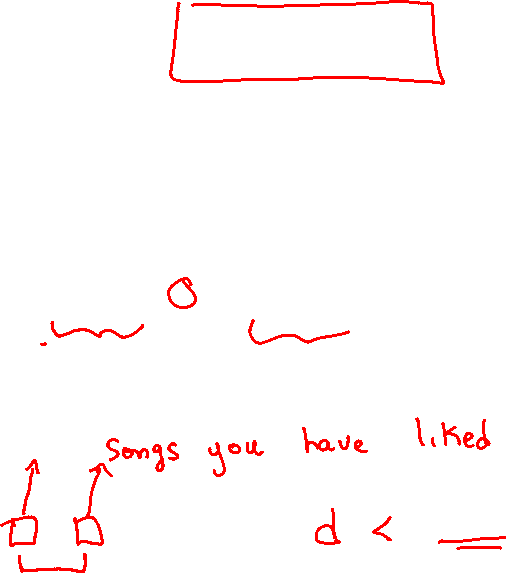 songs you have liked
d <